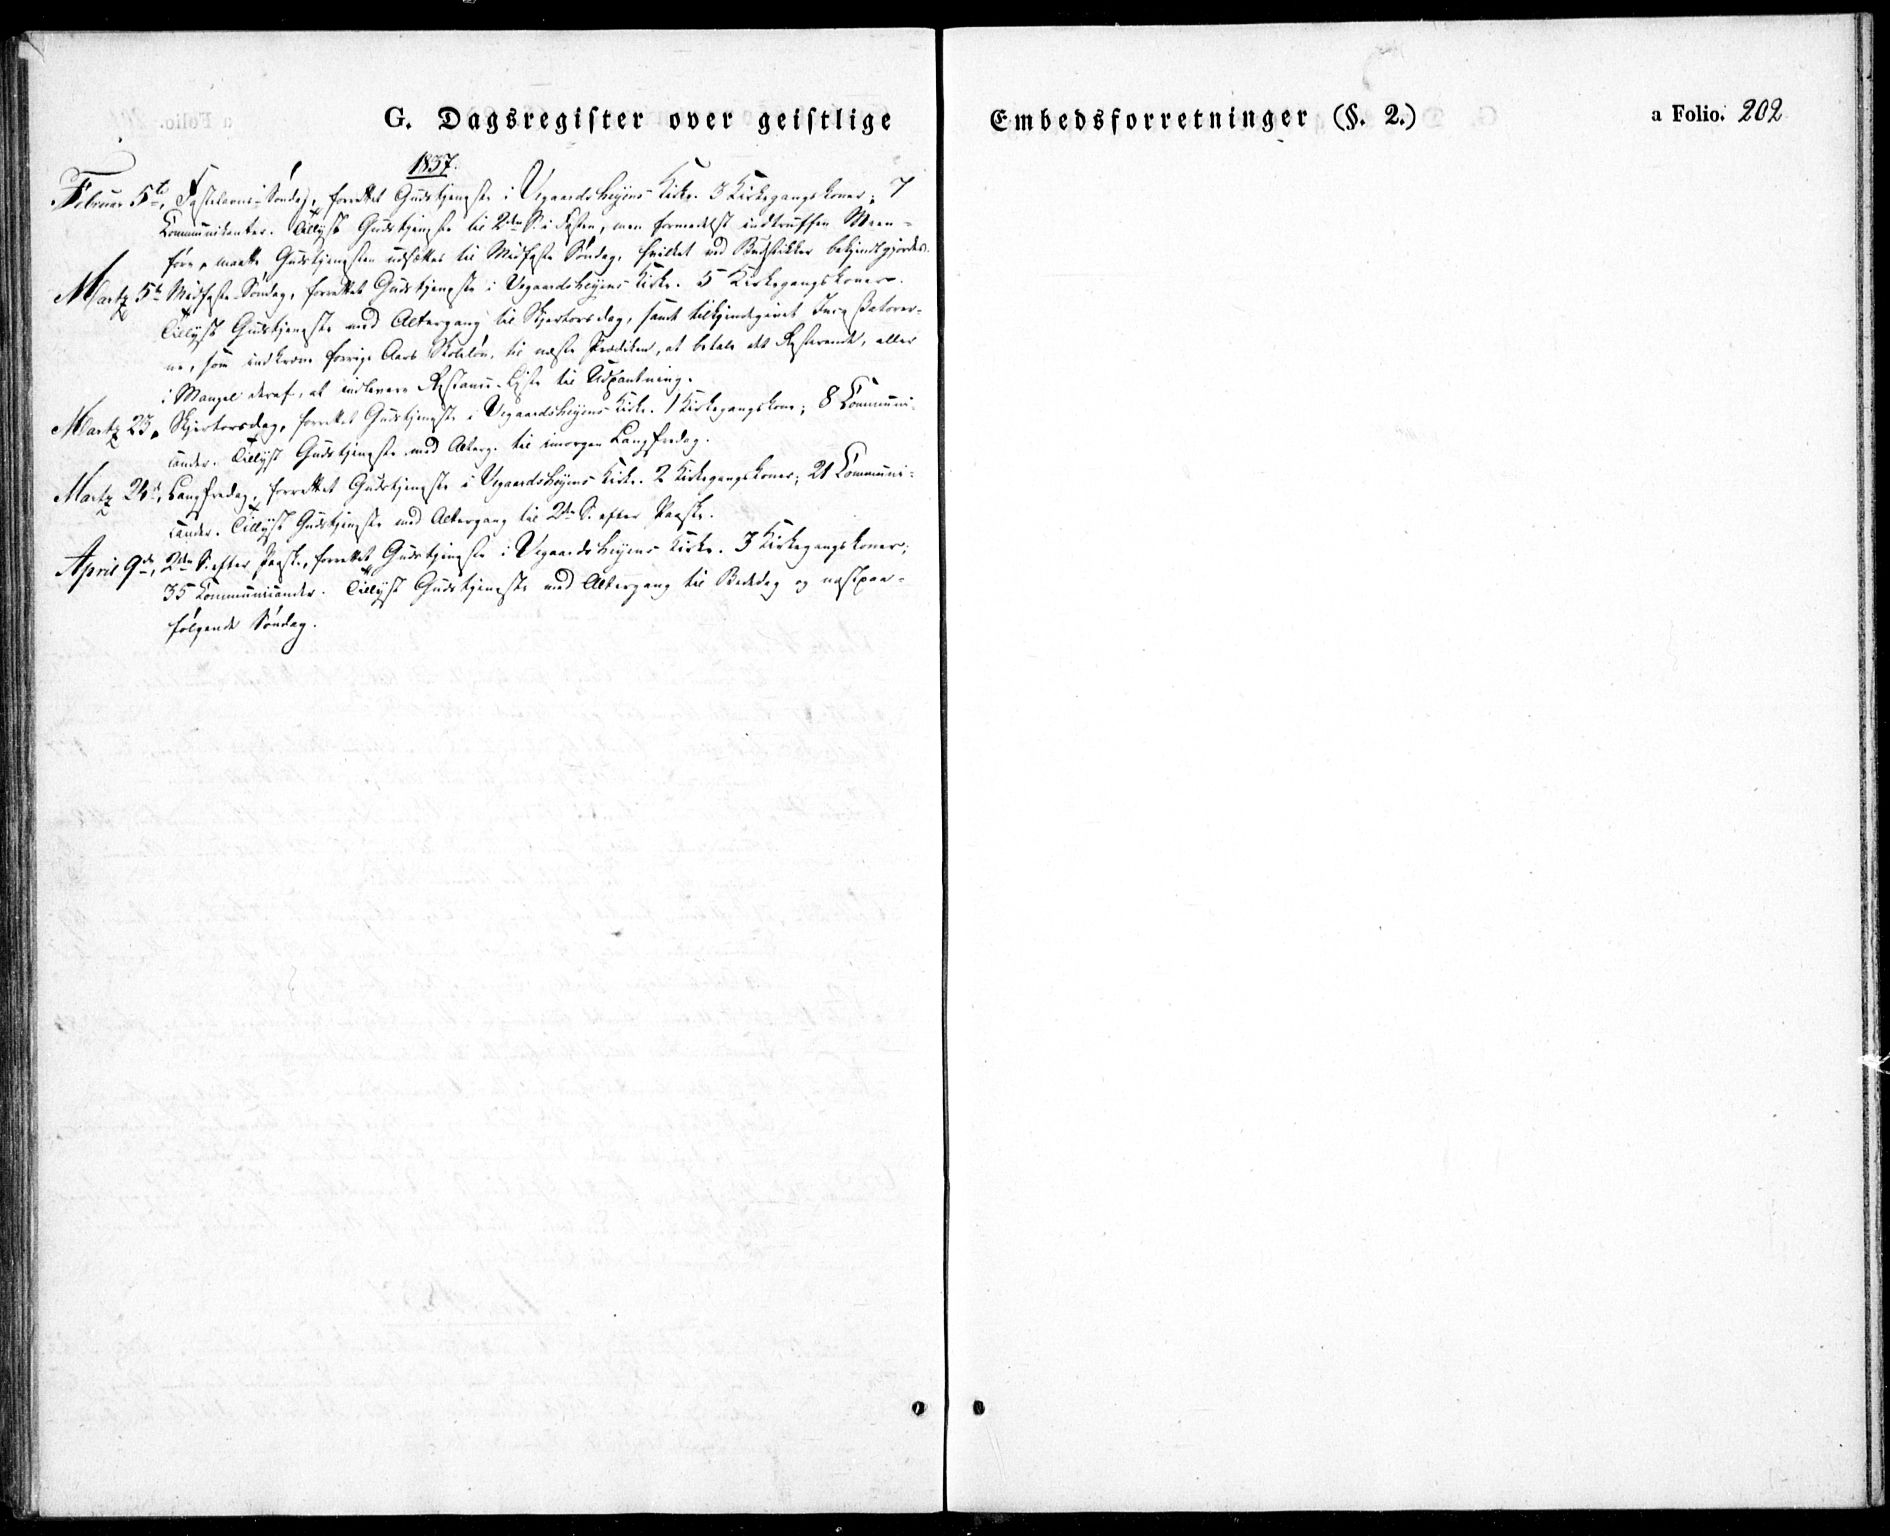 G. Dagsregister over geistlige Embedsforretninger (§. 2.)
a Folio. 202
1837.
Februar 5te, Fastelavns-Søndag, forrettet Gudstjeneste i Vegaardsheyens Kirke. 3 Kirkegangskoner; 7
Communikanter. Tillyst Gudstjeneste til 2den S. i Fasten, men formedelst indtruffen Meen-
føre, maatte Gudstjenesten udsættes til Midfaste Søndag, hvilket ved Budstikker bekjendtgjordes.
Martz 5te Midfaste-Søndag, forrettet Gudstjeneste i Vegaardsheyens Kirke. 5 Kirkegangskoner.
Tillyst Gudstjeneste med Altergang til Skjertorsdag, samt tilkjendegivet
ne, som indkræve forrige Aars Skoleløn, til næste Prædiken, at betale det Resterende, eller
i Mangel deraf, at indlevere Restance-Liste til Udpantning.
Martz 23, Skjertorsdag, forrettet Gudstjeneste i Vegaardsheyens Kirke. 1 Kirkegangskone; 8 Communi-
cander. Tillyst Gudstjeneste med Alterg. til imorgen Langfredag.
Martz 24de, Langfredag, forrettet Gudstjeneste i Vegaardsheyens Kirke. 2 Kirkegangskoner; 21 Communi-
cander. Tillyst Gudstjeneste med Altergang til 2den S. efter Paaske.
April 9de, 2den S. efter Paaske, forrettet Gudstjeneste i Vegaardsheyens Kirke. 3 Kirkegangskoner;
35 Communicander. Tillyst Gudstjeneste med Altergang til Bededag og næstpaa-
følgende Søndag.